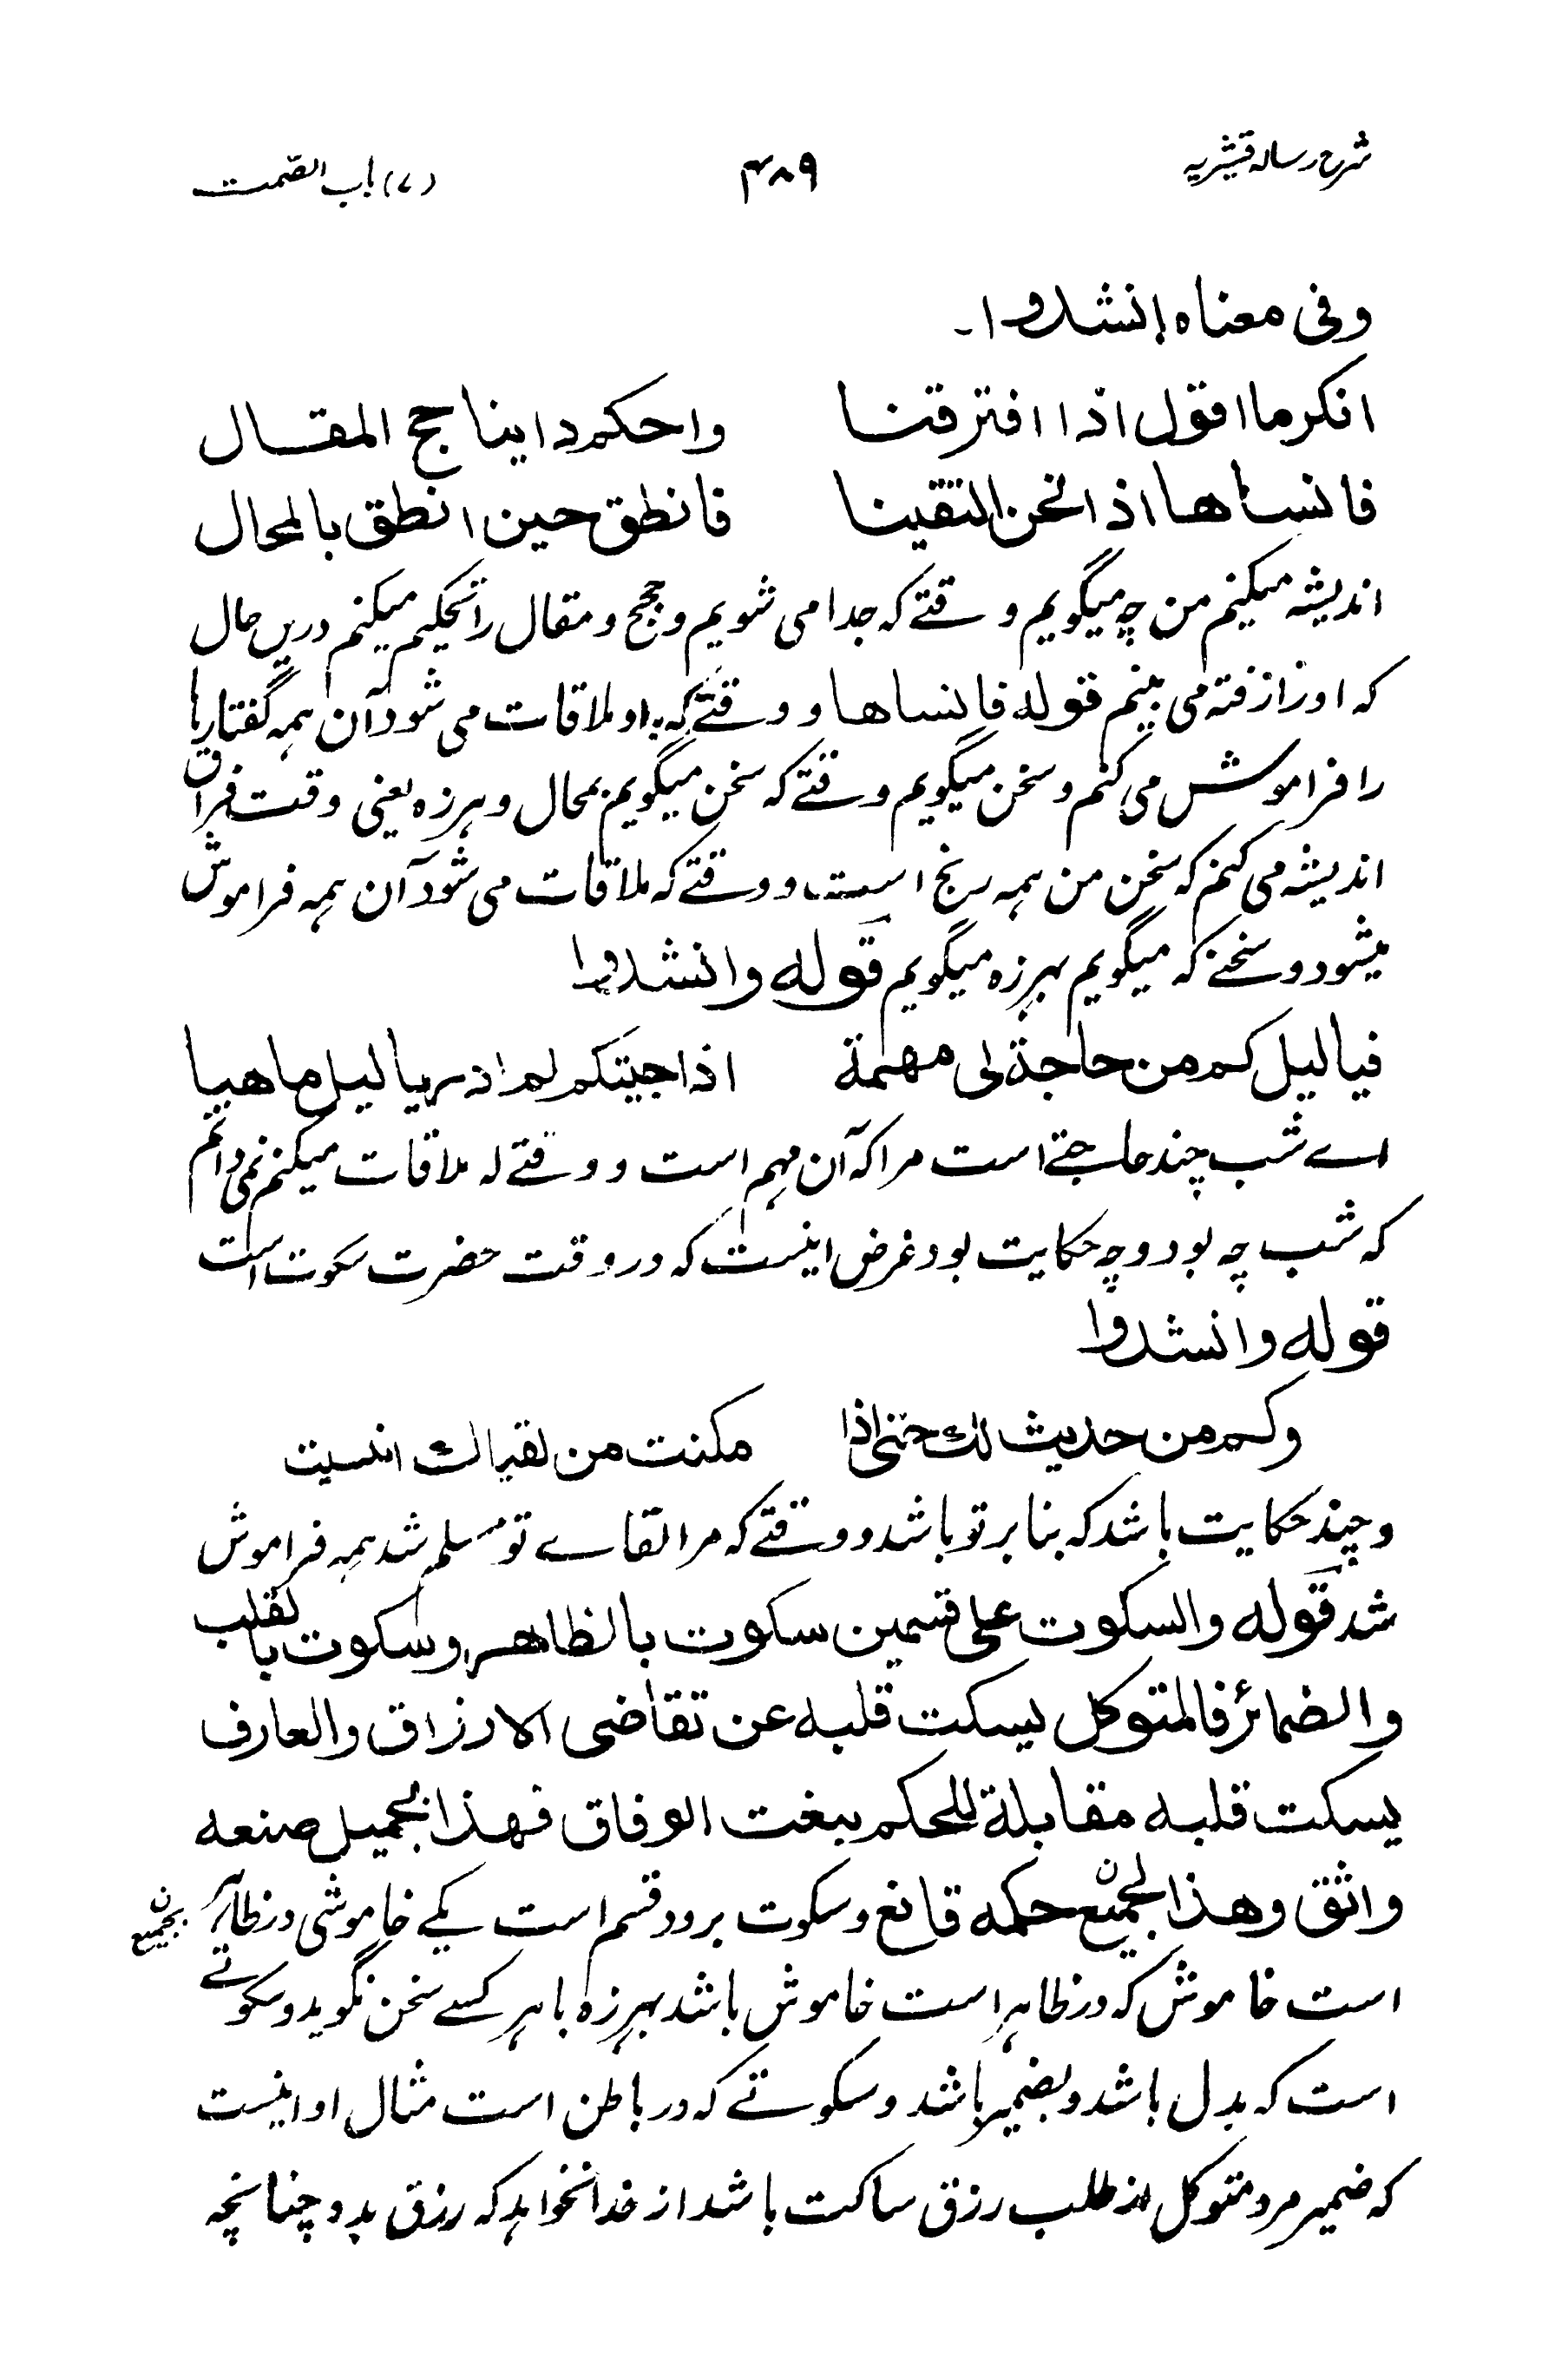 شرح رسالہ قشیریہ ۴۸۹ (۷) باب الصّمت
وفی معناہ انشدوا۔
افکر ما اقول اذا افترقنا واحکم دایبا حجج المقال
فانساھا اذا نحن التقینا فانطق حین انطق بالمحال
اندیشہ میکنم من چہ میگویم وقتے کہ جدا می شویم و حجج و مقال را تحکیم میکنم دریں حال
کہ او را رفتہ می بینم قولہ فانساھا و وقتے کہ باو ملاقات می شود آن ہمہ گفتارہا
را فراموش می کنم و سخن میگویم وقتے کہ سخن میگویم بمحال و ہرزہ یعنی وقت فراق
اندیشہ می کنم کہ سخن من ہمہ رنج است و وقتے کہ ملاقات می شود آن ہمہ فراموش
میشود و سخنے کہ میگویم بہرزہ میگویم قولہ وانشدوا
فیا لیل کم من حاجة لی مھمة اذا جیتکم لم ادر یا لیل ما ھیا
اے شب چند حاجتے است مرا کہ آن مہم است و وقتے کہ ملاقات میکنم نمی دانم
کہ شب چہ بود و چہ حکایت بود غرض اینست کہ در وقت حضرت سکوت است
قولہ وانشدوا
وکم من حدیث لك حتی اذا مکنت من لقیاك انسیت
و چند حکایت باشد کہ بنا بر تو باشد و وقتے کہ مرا لقاے تو مسلم شد ہمہ فراموش
شد قولہ والسکوت علی قسمین سکوت بالظاھر وسکوت بالقلب
والضمائر فالمتوکل یسکت قلبہ عن تقاضی الارزاق والعارف
یسکت قلبہ مقابلة للحکم ببغت الوفاق فھذا بجمیل صنعہ
واثق وھذا لجمیع ن حکمہ قانع و سکوت بر دو قسم است یکے خاموشی در ظاہر ن بجمیع
است خاموش کہ در ظاہر است خاموش باشد بہرزہ با ہر کسے سخن نگوید و سکوتے
است کہ بدل باشد و بضمیر باشد و سکوتے کہ در باطن است مثال او اینست
کہ ضمیر مرد متوکل از طلب رزق ساکت باشد از خدا نخواہد کہ رزق بدہ چنانچہ